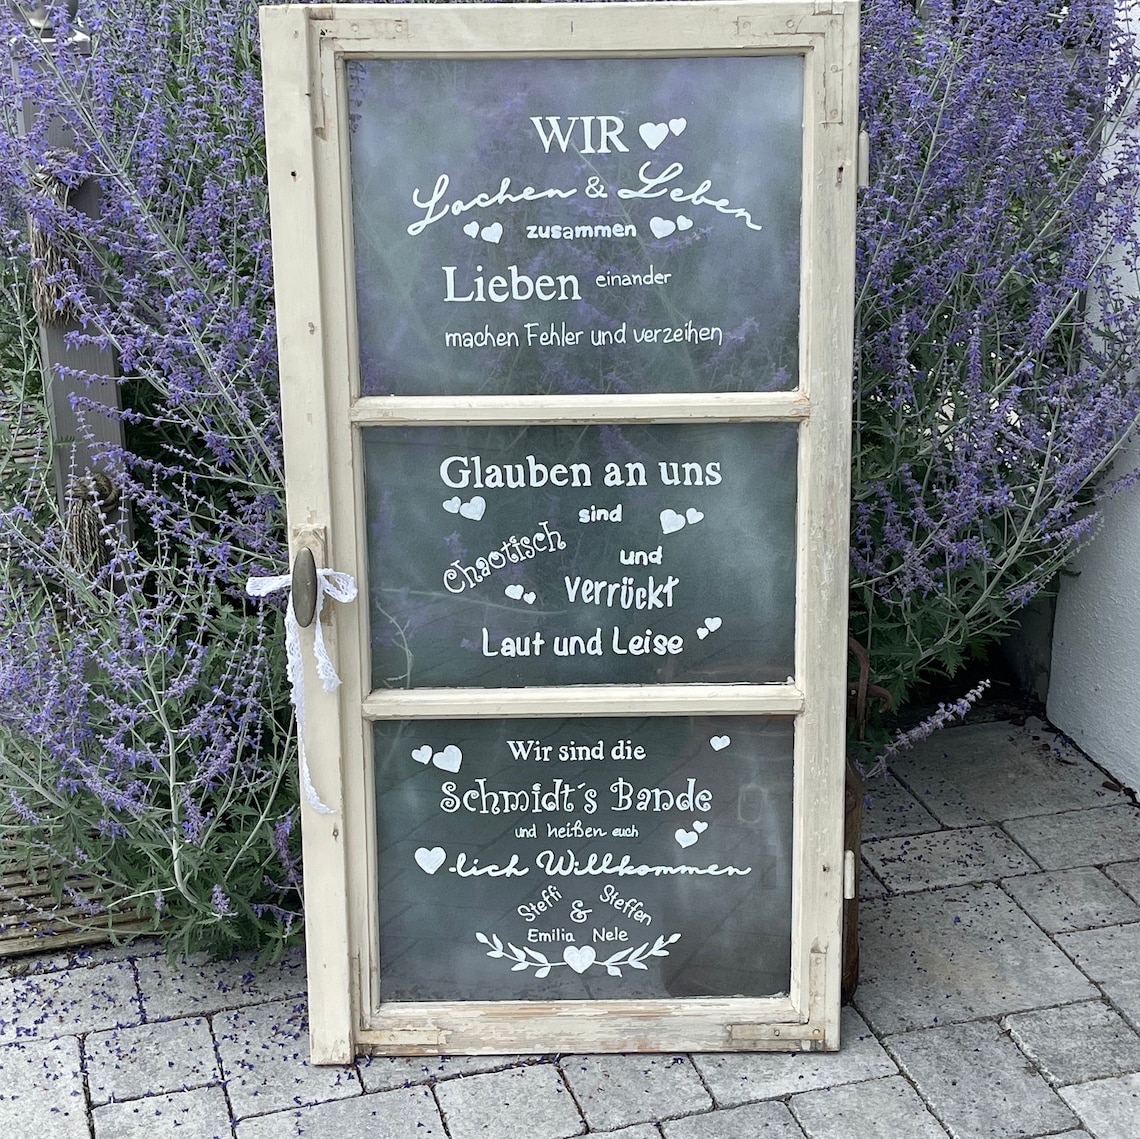 WIR
Lachen & Leben
zusammen
Lieben einander
machen Fehler und verzeihen
Glauben an uns
sind
Chaotisch und
Verrückt
Laut und Leise
Wir sind die
Schmidt´s Bande
und heißen euch
-lich Willkommen
Steffi & Steffen
Emilia Nele